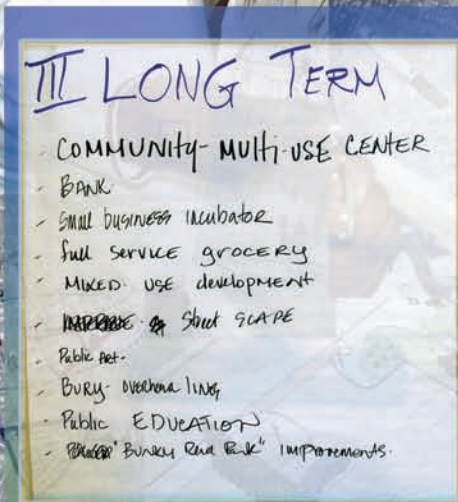 III LONG TERM
- COMMUNITY - MULTI-USE CENTER
- BANK
- Small business incubator
- full service grocery
- MIXED USE development
- Street SCAPE
- Public Art.
- BURY - overhead lines
- Public EDUCATION
- "Bunky Park" improvements.